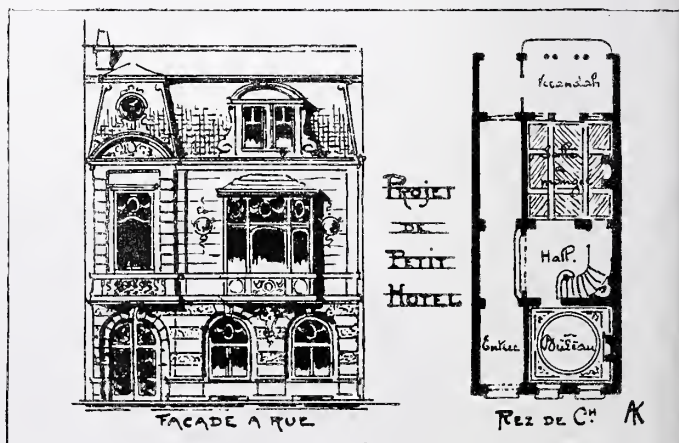 PROJET
DE
PETIT
HOTEL
Verandah
Salle
manger
Hall.
Entree
Bureau
FACADE A RUE
REZ DE CH
AK